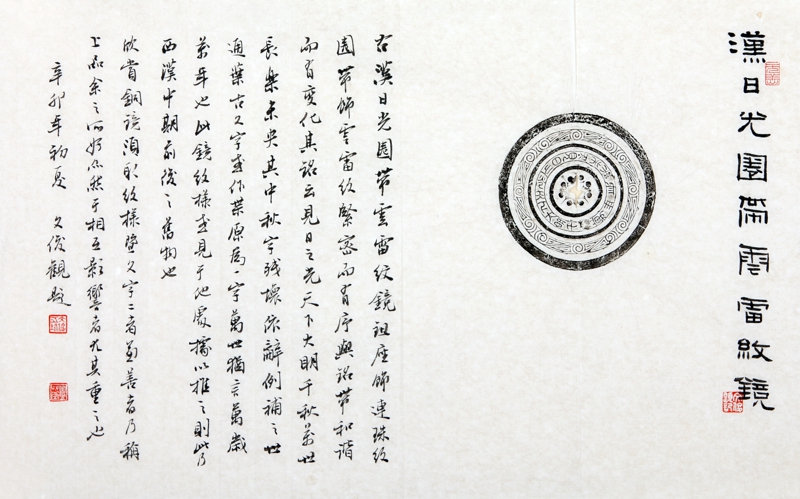 漢日光圈帶雲雷紋鏡
右漢日光圈帶雲雷紋鏡鈕座飾連珠紋
圈帶飾雲雷紋緊密而有序與銘帶和諧
而有變化其銘云見日之光天下大明千秋萬世
長樂未央其中秋字殘壞依辭例補之世
通葉古文字或作枼原為一字萬世猶言萬歲
萬年也此鏡紋樣互見于他處據以推之則此乃
西漢中期前後之舊物也
欣賞銅鏡須視紋樣暨文字二者並善者乃稱
上品余之所好亦然于相互影響者尤其重之也
辛卯年初夏 文俊觀題